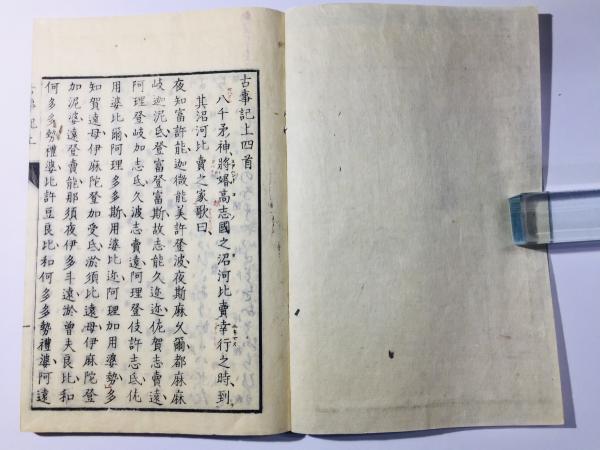 古事記上四首
八千矛神、將婚高志國之沼河比賣幸行之時、到
其沼河比賣之家歌曰、
夜知富許能迦微能美許登波、夜斯麻久爾、都麻麻
岐迦泥弖、登富登富斯、故志能久迩迩、佐賀志賣遠、
阿理登岐加志弖、久波志賣遠、阿理登伎許志弖、佐
用婆比爾、阿理多多斯、用婆比迩、阿理加用婆勢、多
知賀遠母、伊麻陀登加受弖、淤須比遠母、伊麻陀登
加泥婆、遠登賣能、那須夜伊多斗遠、淤曾夫良比、和
何多多勢禮婆、比許豆良比、和何多多勢禮婆、阿遠